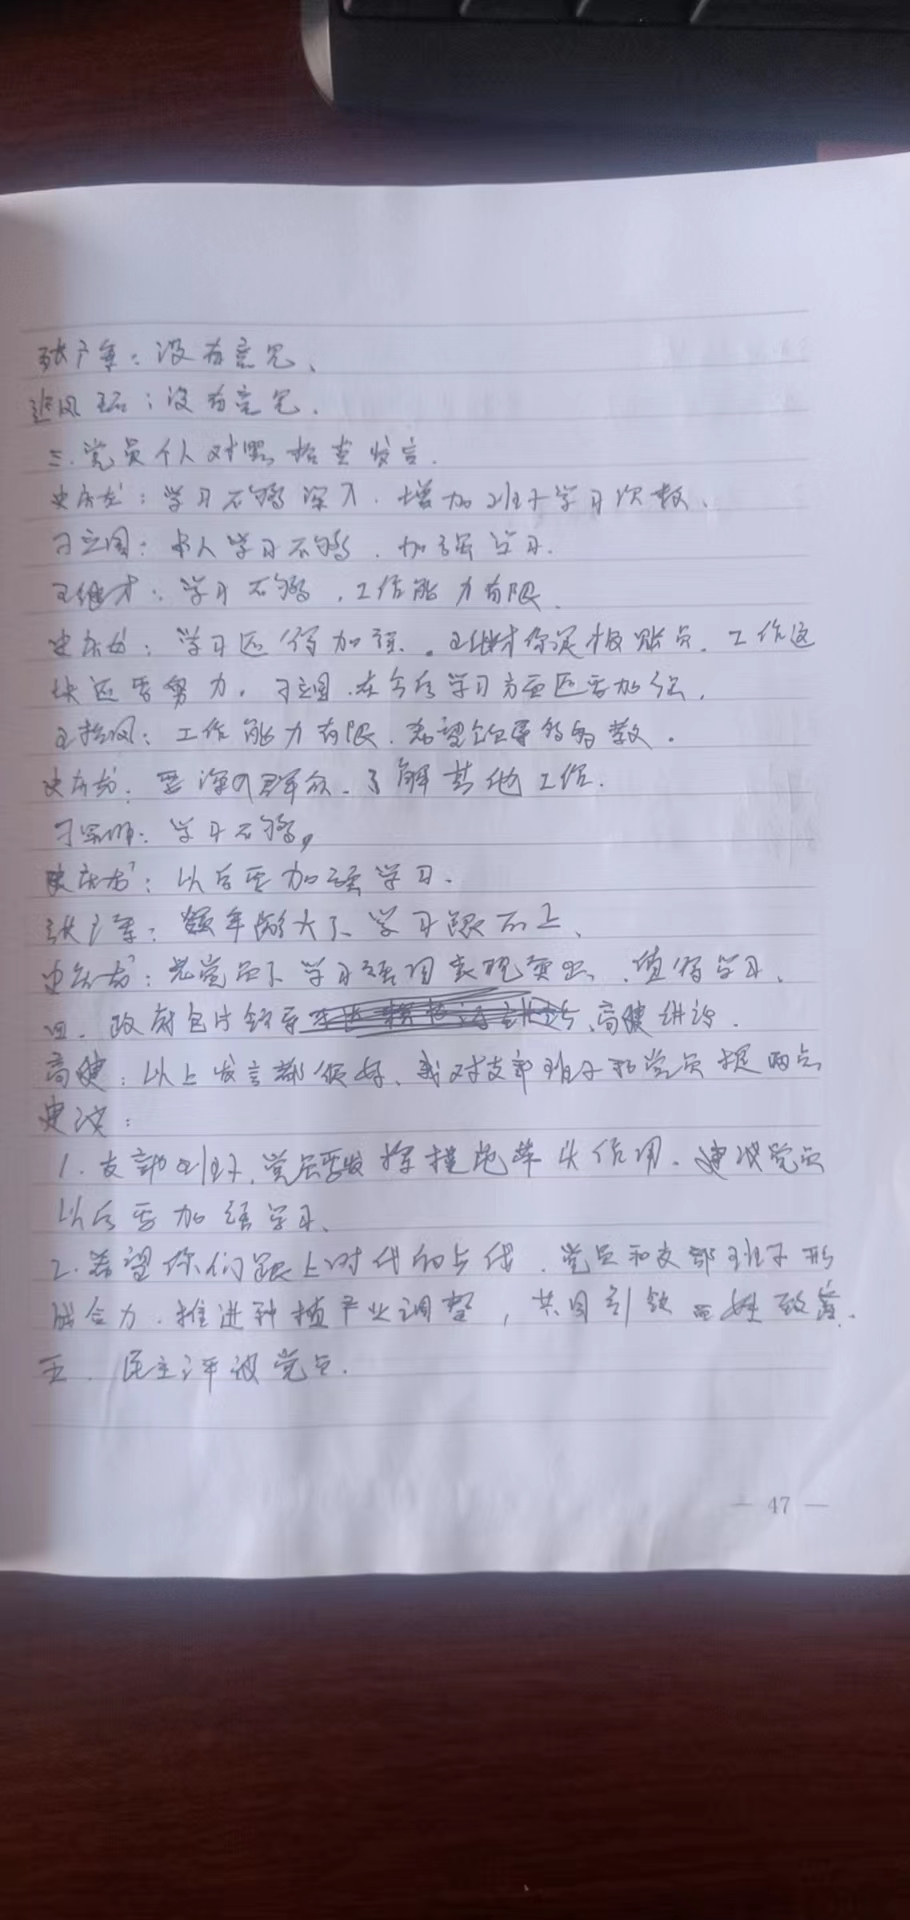 张广军：没有意见、
凤：没有意见.
三.党员个人对照检查发言.
史庆龙：学习不够深入.增加班子学习次数、
刁立国：本人学习不够、加强学习.
王继才：学习不够，工作能力有限.
史庆龙：学习还得加强。王继才你是报账员.工作这
块还要努力，刁立国.在今后学习方面还要加强.
王凤：工作能力有限.希望
史庆龙：要深入群众、了解其他工作.
刁：学习不够，
史庆龙：以后要加强学习.
张广军：年龄大了、学习跟不上、
史庆龙：老党员了学习强国表现突出、值得学习、
四、政府包片领导、高健讲话.
高健：以上发言都很好、我对支部班子和党员提两点
建议：
1.支部班子、党员要发挥模范带头作用.建议党员
以后要加强学习、
2.希望你们跟上时代的步伐.党员和支部班子形
成合力.推进种植产业调整，共同引领百姓致富.
五.民主评议党员.
— 47 —